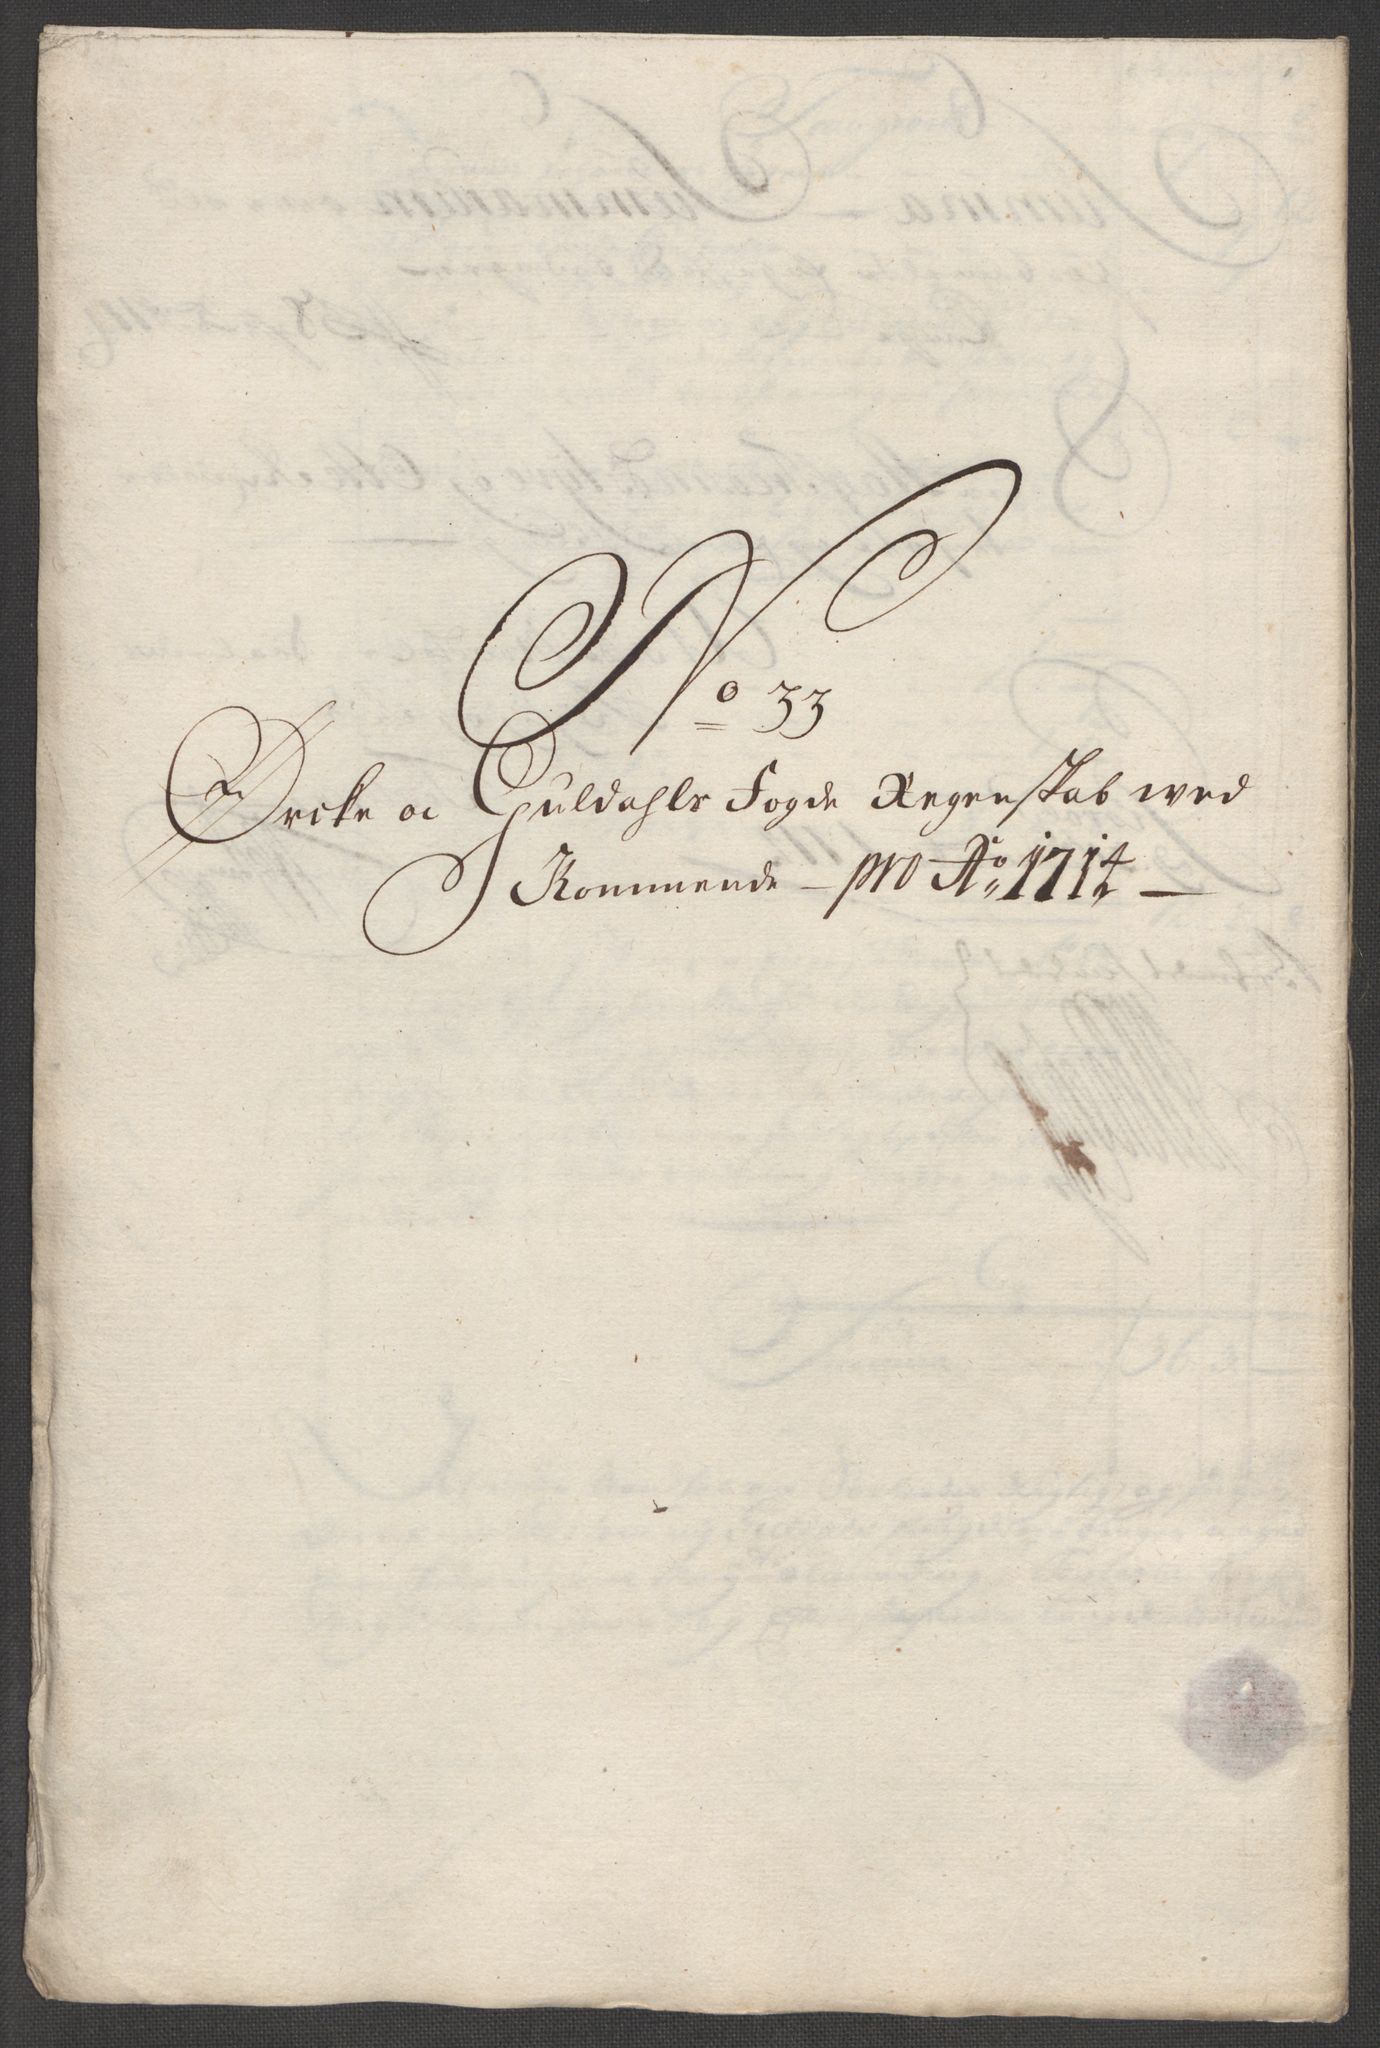 No 33
Ørcke oc Guldahls Fogde Regenskab wed
Kommende – pro Ao 1714 –